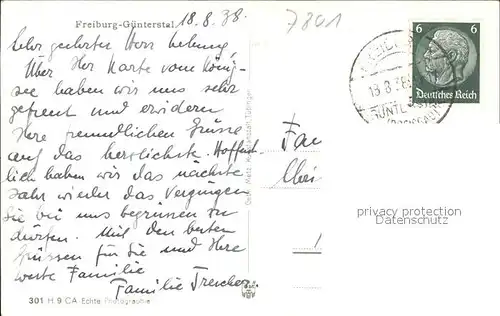 Freiburg-Günterstal
18.8.38.
7801
Sehr geehrter Herr
Über Ihre Karte vom König-
see haben wir uns sehr
gefreut und erwidern
Ihre freundlichen Grüsse
auf das herzlichste. Hoffent-
lich haben wir das nächste
Jahr wieder das Vergnügen
Sie bei uns begrüssen zu
dürfen. Mit den besten
Grüssen für Sie und Ihre
werte Familie
Familie
301 H. 9 CA - Echte Photographie
Metz Tübingen
Fam
6 6
Deutsches Reich
18.8.38
privacy protection
Datenschutz